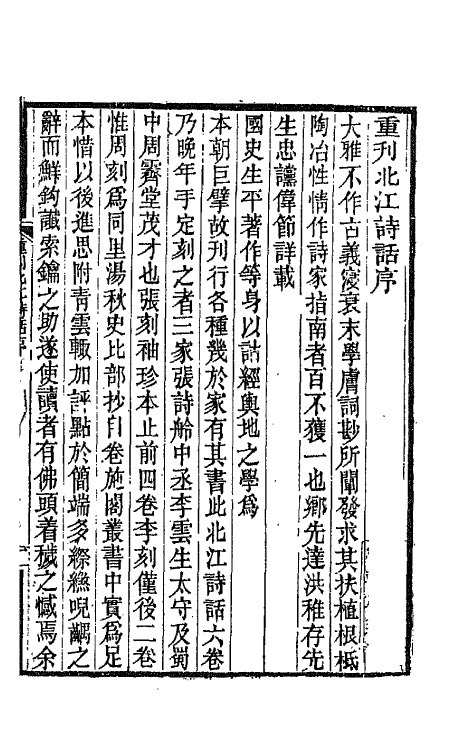 重刊北江詩話序
大雅不作古義寖衰末學膚詞尠所闡發求其扶植根柢
陶冶性情作詩家指南者百不獲一也鄉先達洪稚存先
生忠讜偉節詳載
國史生平著作等身以詁經輿地之學為
本朝巨擘故刊行各種幾於家有其書此北江詩話六卷
乃晚年手定刻之者三家張詩舲中丞李雲生太守及蜀
中周霽堂茂才也張刻袖珍本止前四卷李刻僅後二卷
惟周刻為同里湯秋史比部抄自卷施閣叢書中實為足
本惜以後進思附靑雲輙加評點於簡端多繆繺唲齵之
辭而鮮鉤讖索鑰之助遂使讀者有佛頭着穢之憾焉余